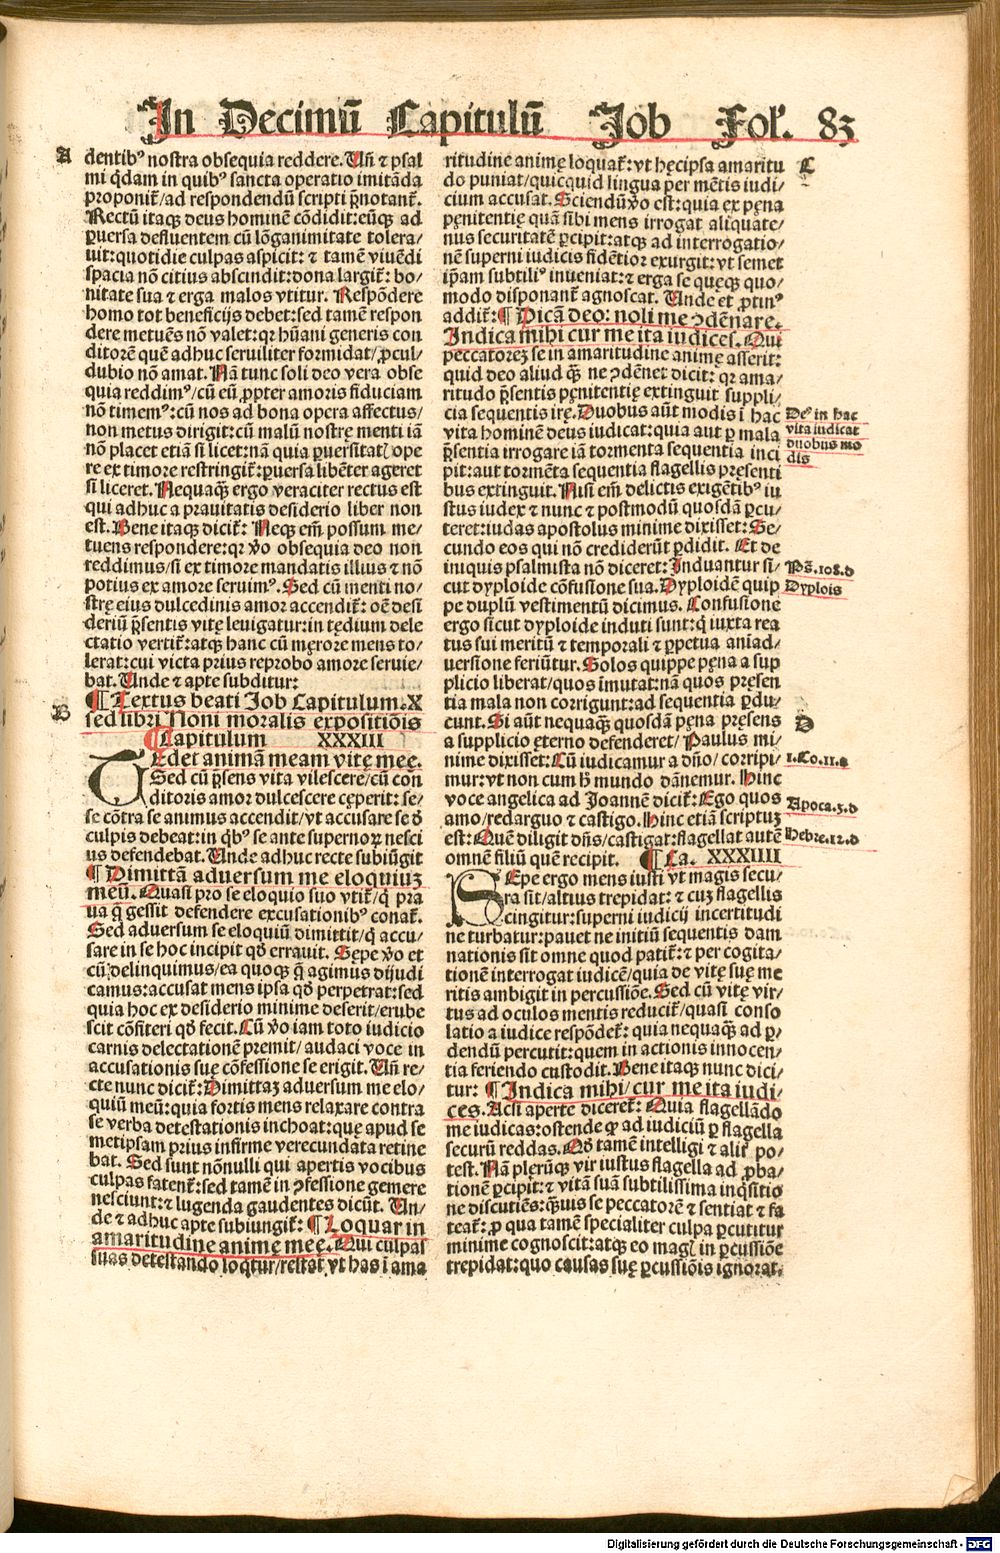 In Decimũ Capitulũ Job Fol'. 83
A
dentib⁹ nostra obsequia reddere. Un̄ ⁊ psal
mi q̄dam in quib⁹ sancta operatio imitãda
proponit᷑/ad respondendũ scripti p̄notant᷑.
Rectũ itaqꝫ deus hominẽ cõdidit: eũqꝫ ad
ꝑuersa defluentem cũ lõganimitate tolera/
uit: quotidie culpas aspicit: ⁊ tamẽ viuẽdi
spacia nõ citius abscindit: dona largit᷑: bo/
nitate sua ⁊ erga malos vtitur. Respõdere
homo tot beneficijs debet: sed tamẽ respon
dere metuẽs nõ valet: qꝛ hũani generis con
ditorẽ quẽ adhuc seruiliter formidat/ꝓcul/
dubio nõ amat. Nã tunc soli deo vera obse
quia reddim⁹/cũ eũ ꝓpter amoris fiduciam
nõ timem⁹: cũ nos ad bona opera affectus/
non metus dirigit: cũ malũ nostrę menti iã
nõ placet etiã si licet: nã quia ꝑuersitatꝭ ope
re ex timore restringit᷑: ꝑuersa libẽter ageret
si liceret. Nequaqꝫ̃ ergo veraciter rectus est
qui adhuc a prauitatis desiderio liber non
est. Bene itaqꝫ dicit᷑: Neqꝫ em̃ possum me/
tuens respondere: qꝛ vo obsequia deo non
reddimus/si ex timore mandatis illius ⁊ nõ
potius ex amore seruim⁹. Sed cũ menti no/
strę eius dulcedinis amor accendit᷑: oẽ desi
deriũ p̄sentis vitę leuigatur: in tędium dele
ctatio vertit᷑: atqꝫ hanc cũ męrore mens to/
lerat: cui victa prius reprobo amore seruie/
bat. Unde ⁊ apte subditur:
¶ Textus beati Job Capitulum. X
B
sed libri Noni moralis expositiõis
¶ Capitulum XXXIII
TEdet animãm meam vitę meę.
Sed cũ p̄sens vita vilescere/cũ cõn
ditoris amor dulcescere cęperit: se/
se cõtra se animus accendit/vt accusare se đ
culpis debeat: in q̄b⁹ se ante supernoꝝ nesci
us defendebat. Unde adhuc recte subiũgit
¶ Dimittã aduersum me eloquiuꝫ
meũ. Quasi pro se eloquio suo vtit᷑/q̇ pra
ua q̄ gessit defendere excusationib⁹ conat᷑.
Sed aduersum se eloquiũ dimittit/q̇ accu/
sare in se hoc incipit qđ errauit. Sępe vo et
cũ delinquimus/ea quoqꝫ q̄ agimus dijudi
camus: accusat mens ipsa qđ perpetrat: sed
quia hoc ex desiderio minime deserit/erube
scit cõfiteri qđ fecit. Cũ vo iam toto iudicio
carnis delectationẽ premit/audaci voce in
accusationis suę cõfessione se erigit. Un̄ re/
cte nunc dicit᷑: Dimittaꝫ aduersum me elo/
quiũ meũ: quia fortis mens relaxare contra
se verba detestationis inchoat: quę apud se
metipsam prius infirme verecundata retine
bat. Sed sunt nõnulli qui apertis vocibus
culpas fatent᷑: sed tamẽ in ꝯfessione gemere
nesciunt: ⁊ lugenda gaudentes dicũt. Un/
de ⁊ adhuc apte subiungit᷑: ¶ Loquar in
amaritudine animę meę. Qui culpas
suas detestando loq̄tur/restat vt has i ama
ritudine animę loquat᷑: vt hęc ipsa amaritu
C
do puniat/quicquid lingua per mẽtis iudi/
cium accusat. Sciendũ vo est: quia ex pęna
pęnitentię quã sibi mens irrogat aliquate/
nus securitatẽ ꝑcipit: atqꝫ ad interrogatio/
nẽ superni iudicis fidẽtior exurgit: vt semet
ip̃am subtili⁹ inueniat: ⁊ erga se quęqꝫ quo/
modo disponant᷑ agnoscat. Unde et ꝓtin⁹
addit᷑: ¶ Dicã deo: noli me ꝯdẽnare.
Indica mihi cur me ita iudices. Qui
peccatoreꝫ se in amaritudine animę asserit:
quid deo aliud qꝫ̃ ne ꝯdẽnet dicit: qꝛ ama/
ritudo p̄sentis pęnitentię extinguit suppli/
cia sequentis irę. Duobus aũt modis i hac
De⁹ in hac
vita iudicat
duobus mo
dis
vita hominẽ deus iudicat: quia aut ꝑ mala
p̄sentia irrogare iã tormenta sequentia inci
pit: aut tormẽta sequentia flagellis pręsenti
bus extinguit. Nisi em̃ delictis exigẽtib⁹ iu
stus iudex ⁊ nunc ⁊ postmodũ quosdã ꝑcu/
teret: iudas apostolus minime dixisset: Se/
cundo eos qui nõ crediderũt ꝑdidit. Et de
iniquis psalmista nõ diceret: Induantur si/
Ps̃. 108. d
cut dyploide cõfusione sua. Dyploidẽ quip
Dyplois
pe duplũ vestimentũ dicimus. Confusione
ergo sicut dyploide induti sunt: q̇ iuxta rea
tus sui meritũ ⁊ temporali ⁊ ꝑpetua aniad/
uersione feriũtur. Solos quippe pęna a sup
plicio liberat/quos ĩmutat: nã quos pręsen
tia mala non corrigunt: ad sequentia ꝑdu/
cunt. Si aũt nequaqꝫ̃ quosdã pęna pręsens
D
a supplicio ęterno defenderet/Paulus mi/
nime dixisset: Cũ iudicamur a dño/corripi/
1. Co. 11. g
mur: vt non cum h̃ mundo dãnemur. Hinc
voce angelica ad Joannẽ dicit᷑: Ego quos
Apoca. 3. d
amo/redarguo ⁊ castigo. Hinc etiã scriptuꝫ
est: Quẽ diligit dñs/castigat: flagellat autẽ
Hebre. 12. d
omnẽ filiũ quẽ recipit. ¶ Ca. XXXIIII
SEpe ergo mens iusti vt magis secu/
ra sit/altius trepidat: ⁊ cuꝫ flagellis
cingitur: superni iudicij incertitudi
ne turbatur: pauet ne initiũ sequentis dam
nationis sit omne quod patit᷑: ⁊ per cogita/
tionẽ interrogat iudicẽ/quia de vitę suę me
ritis ambigit in percussiõe. Sed cũ vitę vir/
tus ad oculos mentis reducit᷑/quasi conso
latio a iudice respõdet᷑: quia nequaqꝫ̃ ad ꝑ/
dendũ percutit: quem in actionis innocen/
tia feriendo custodit. Bene itaqꝫ nunc dici/
tur: ¶ Indica mihi/cur me ita iudi/
ces. Acsi aperte diceret᷑: Quia flagellãdo
me iudicas: ostende ꝙ ad iudiciũ ꝑ flagella
securũ reddas. Qđ tamẽ intelligi ⁊ alit᷑ po/
test. Nã plerũqꝫ vir iustus flagella ad ꝓba/
tionẽ ꝑcipit: ⁊ vitã suã subtilissima inq̇sitio
ne discutiẽs: qꝫ̃uis se peccatorẽ ⁊ sentiat ⁊ fa
teat᷑: ꝓ qua tamẽ specialiter culpa ꝑcutitur
minime cognoscit: atqꝫ eo magꝭ in ꝑcussiõe
trepidat: quo causas suę ꝑcussiõis ignorat.
Digitalisierung gefördert durch die Deutsche Forschungsgemeinschaft - DFG